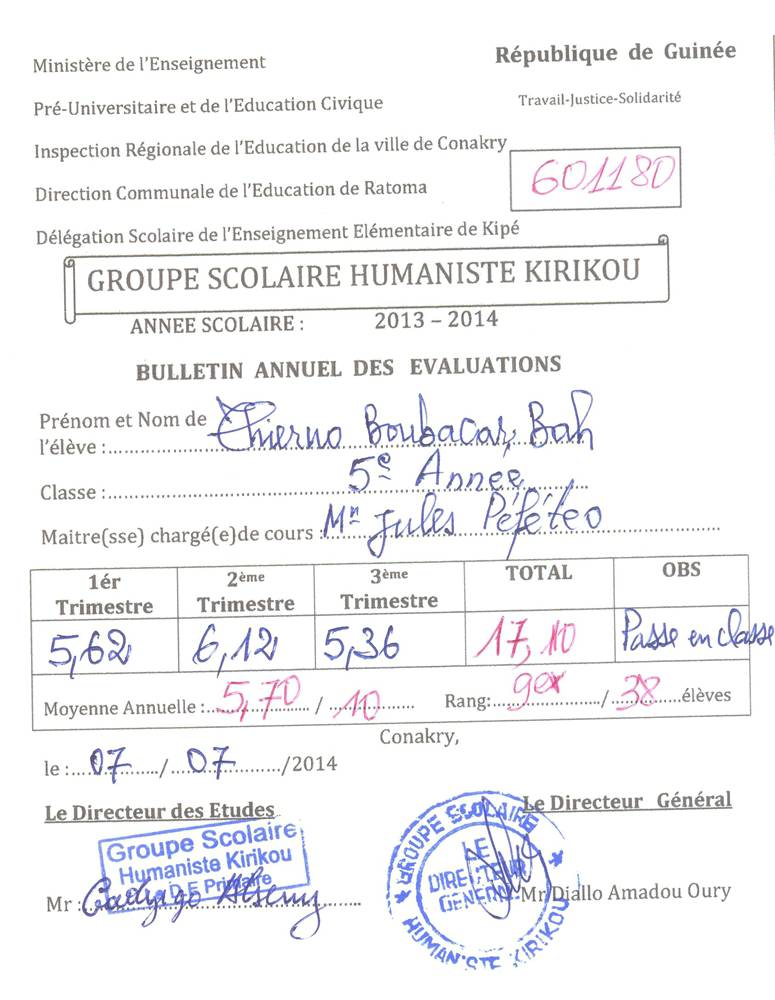 Ministère de l'Enseignement
République de Guinée
Pré-Universitaire et de l'Education Civique
Travail-Justice-Solidarité
Inspection Régionale de l'Education de la ville de Conakry
601180
Direction Communale de l'Education de Ratoma
Délégation Scolaire de l'Enseignement Elémentaire de Kipé
GROUPE SCOLAIRE HUMANISTE KIRIKOU
ANNEE SCOLAIRE : 2013 – 2014
BULLETIN ANNUEL DES EVALUATIONS
Prénom et Nom de
l'élève : Thierno Boubacar Bah
Classe : 5e Annee
Maitre(sse) chargé(e)de cours : Mr Jules Péféteo
1ér Trimestre 2ème Trimestre 3ème Trimestre TOTAL OBS
5,62 6,12 5,36 17,10 Passe en classe
Moyenne Annuelle : 5,70 / 10 Rang: 9ex / 38 élèves
Conakry,
le : 07 / 07 /2014
Le Directeur des Etudes Le Directeur Général
Groupe Scolaire
Humaniste Kirikou
Le D.E Primaire
GROUPE SCOLAIRE
LE
DIRECTEUR
GENERAL
HUMANISTE KIRIKOU
Mr :
Mr Diallo Amadou Oury